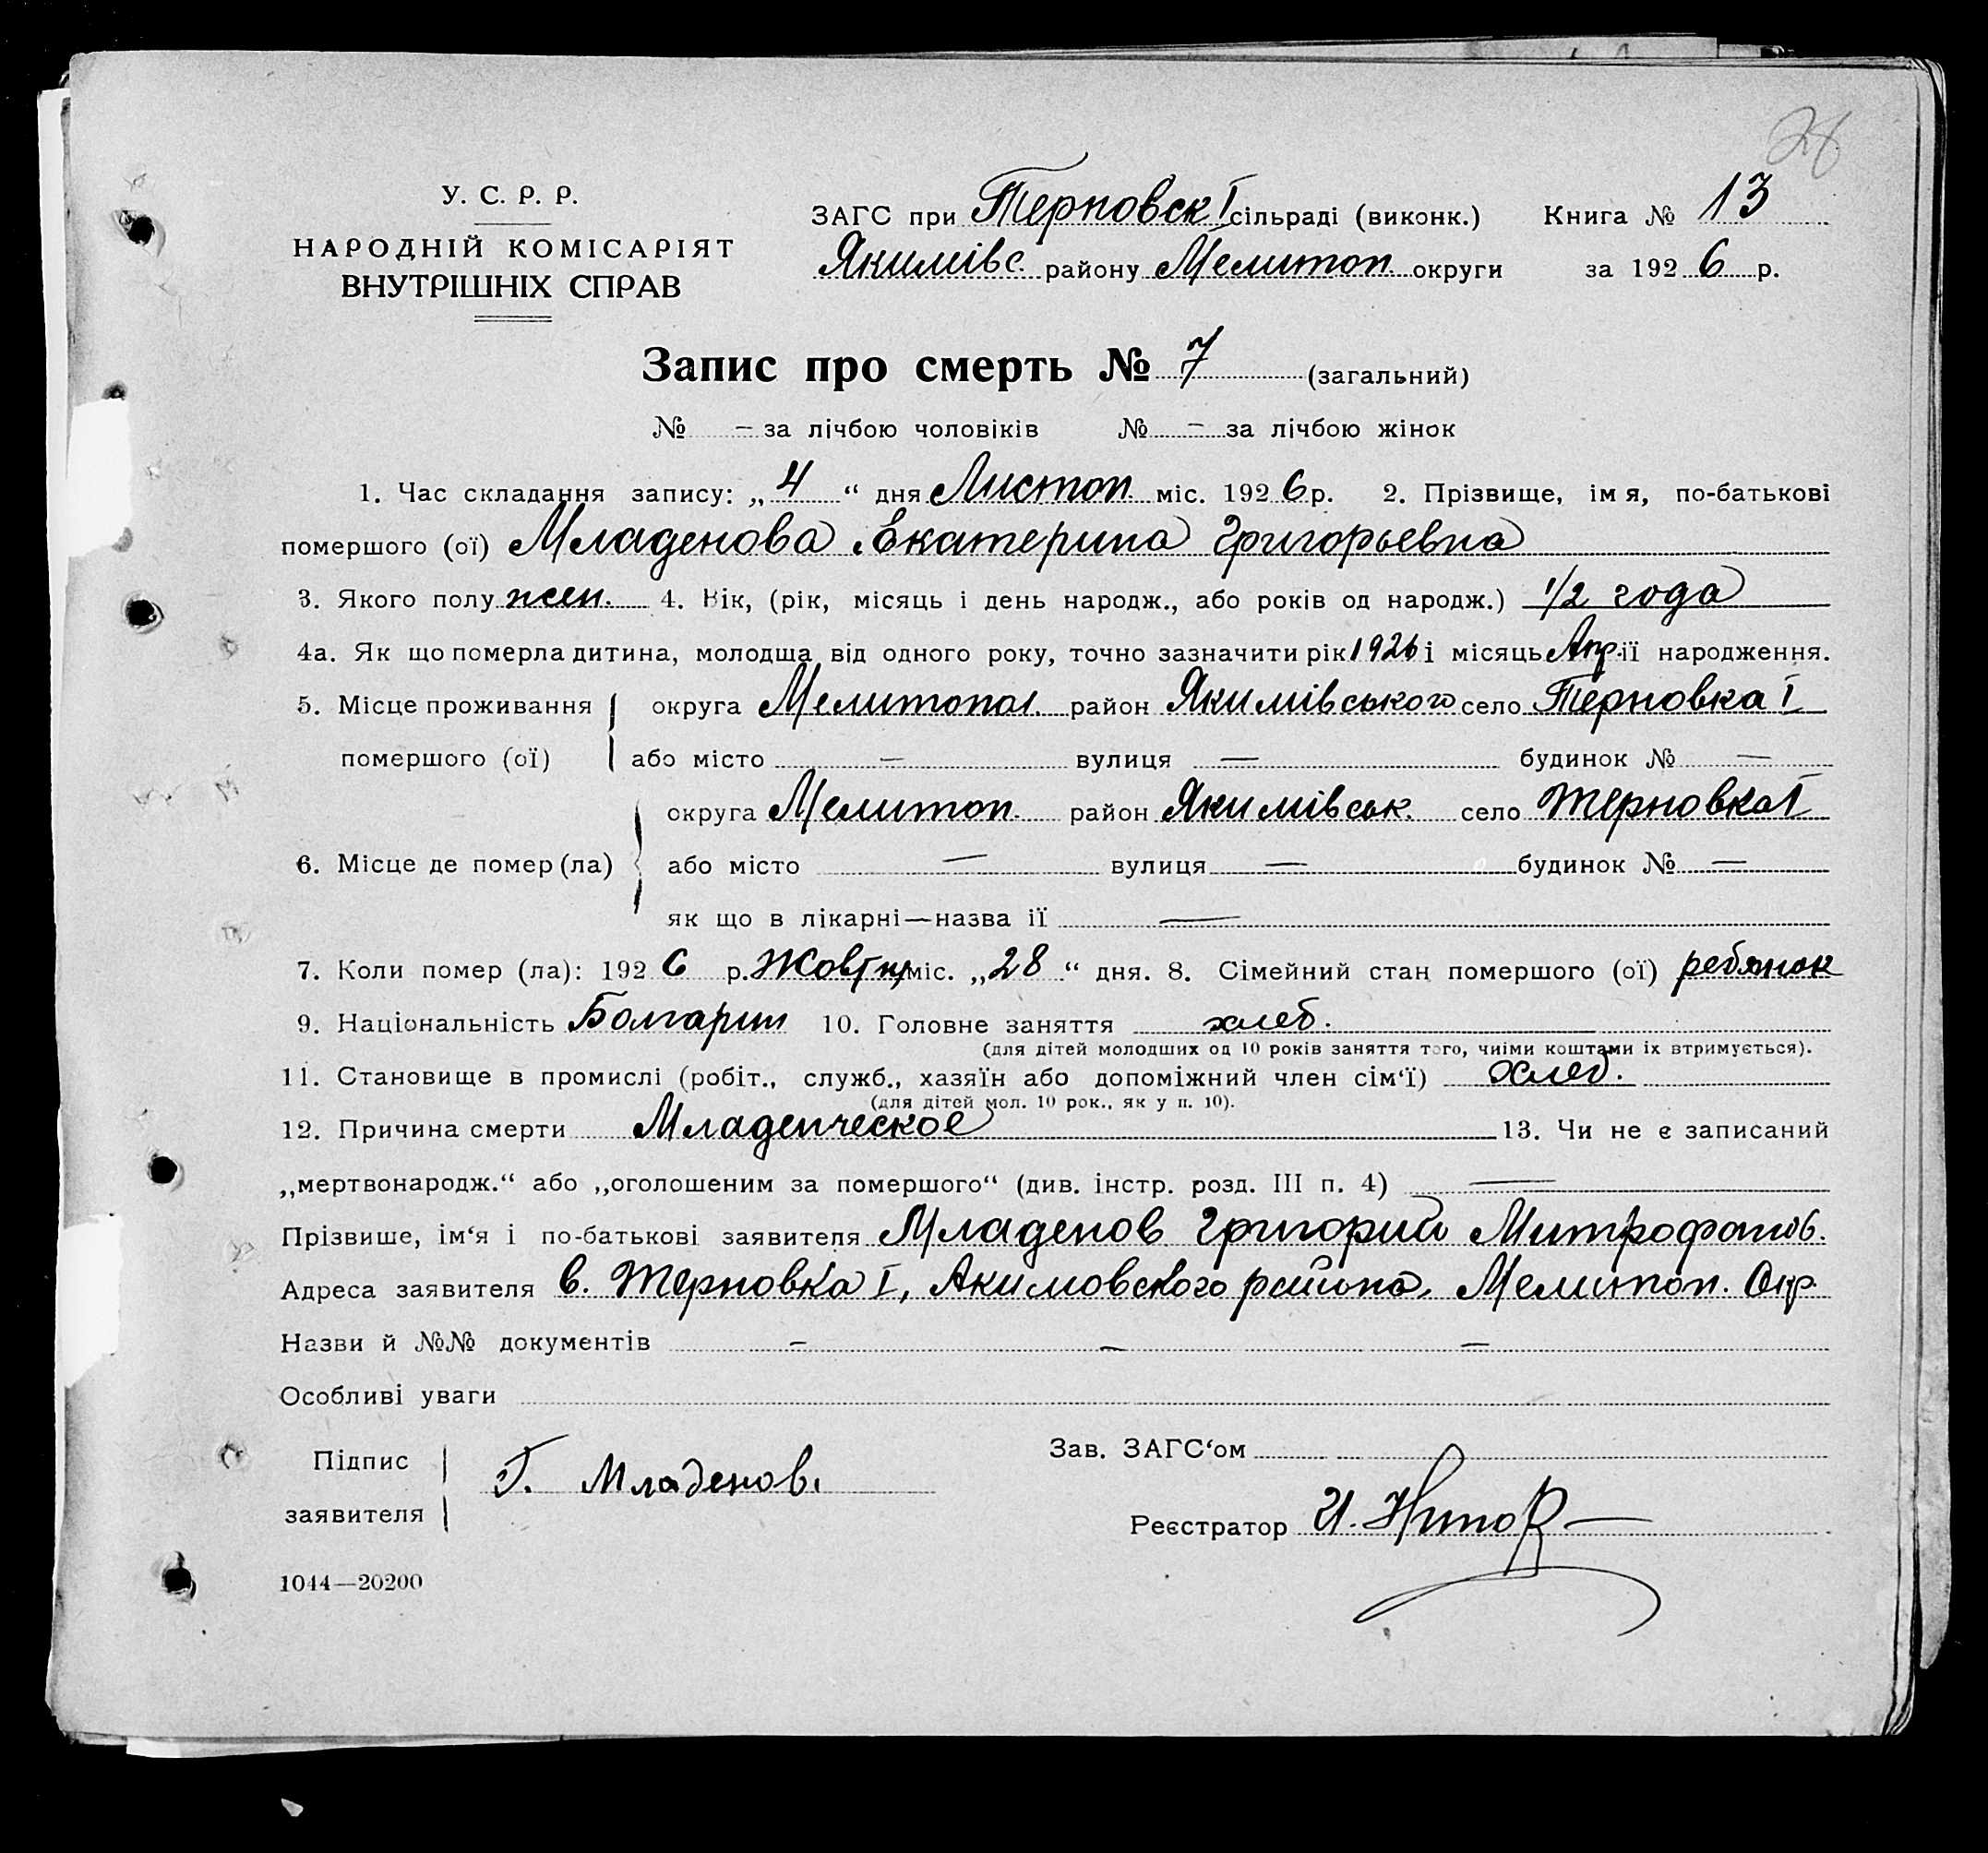 28
У. С. Р. Р.
НАРОДНІЙ КОМІСАРІЯТ
ВНУТРІШНІХ СПРАВ
ЗАГС при Терновск I сільраді (виконк.) Книга № 13
Якимівс. району Мелитоп. округи за 1926 р.
Запис про смерть № 7 (загальний)
№ – за лічбою чоловіків № – за лічбою жінок
1. Час складання запису: „4“ дня Листоп. міс. 1926 р. 2. Прізвище, імя, по-батькові
помершого (ої) Младенова Екатерина Григорьевна
3. Якого полу жен. 4. Вік, (рік, місяць і день народж., або років од народж.) 1/2 года
4а. Як що померла дитина, молодша від одного року, точно зазначити рік 1926 і місяць Апр. її народження.
5. Місце проживання округа Мелитопол. район Якимівського село Терновка I
помершого (ої) або місто — вулиця — будинок № —
округа Мелитоп. район Якимівськ. село Терновка I
6. Місце де помер (ла) або місто — вулиця — будинок № —
як що в лікарні—назва її —
7. Коли помер (ла): 1926 р. Жовтн. міс. „28“ дня. 8. Сімейний стан помершого (ої) ребянок
9. Національність Болгарин 10. Головне заняття хлеб.
(для дітей молодших од 10 років заняття того, чиїми коштами їх втримується).
11. Становище в промислі (робіт., служб., хазяїн або допоміжний член сім‘ї) Хлеб.
(для дітей мол. 10 рок., як у п. 10).
12. Причина смерти Младенческое 13. Чи не є записаний
„мертвонародж.“ або „оголошеним за помершого“ (див. інстр. розд. III п. 4) —
Прізвише, ім‘я і по-батькові заявителя Младенов Григорий Митрофанов.
Адреса заявителя в. Терновка I, Акимовского района, Мелитоп. Окр.
Назви й №№ документів – – –
Особливі уваги
Підпис заявителя Г. Младенов.
Зав. ЗАГС‘ом
Реєстратор И.
1044—20200